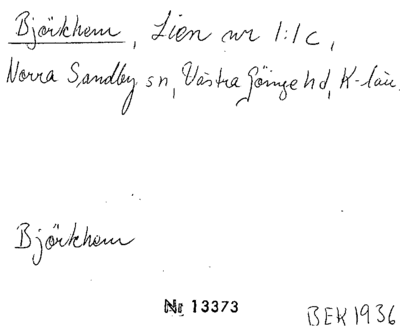 Björkhem, Lien nr 1:1 c,
Norra Sandby sn, Västra Göinge hd, K-län.
Björkhem
Nr 13373
BEK 1936